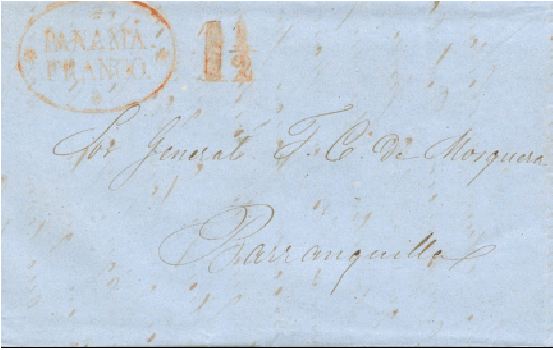 PANAMA
FRANCO.
1½
Sor General T. C. de Mosquera
Barranquilla